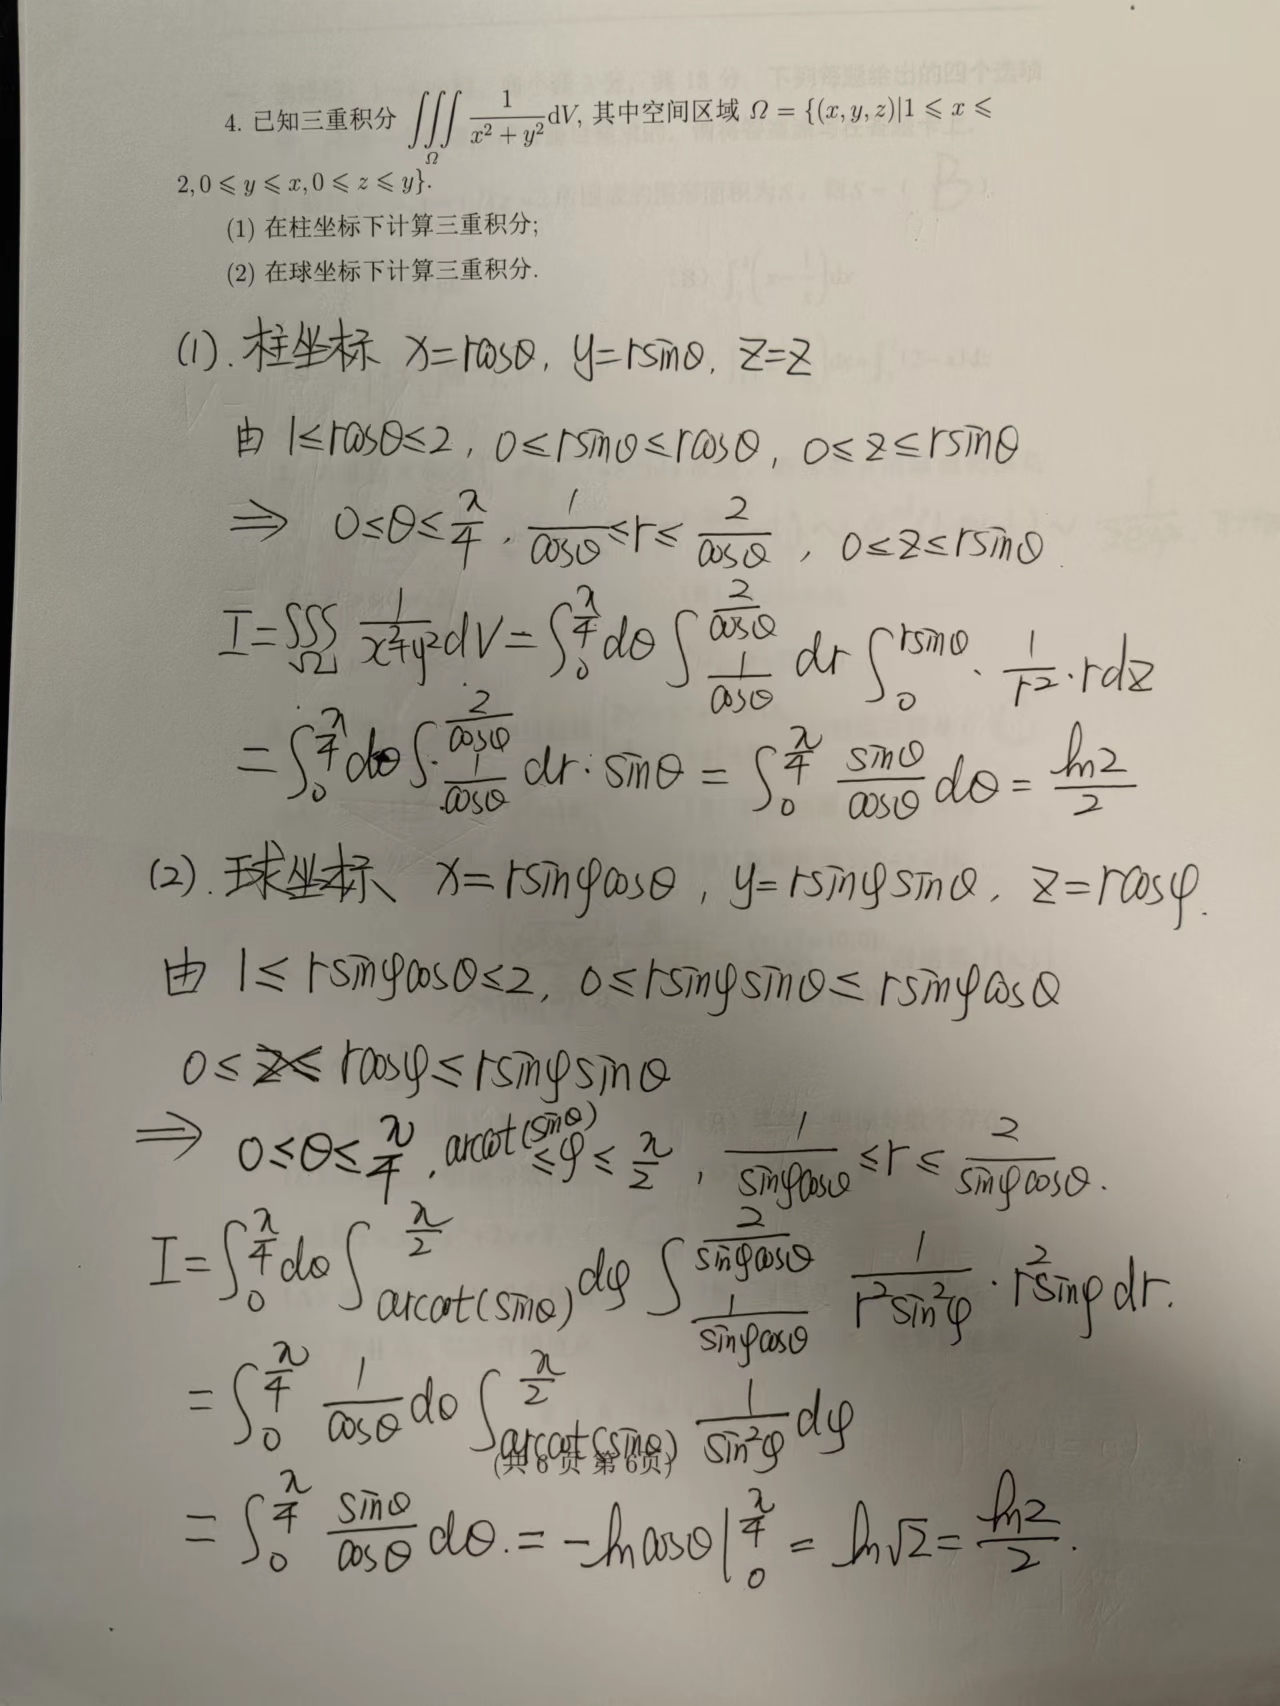 4. 已知三重积分 ∭_Ω 1/(x²+y²) dV, 其中空间区域 Ω = {(x,y,z)|1 ⩽ x ⩽
2,0 ⩽ y ⩽ x,0 ⩽ z ⩽ y}.
(1) 在柱坐标下计算三重积分;
(2) 在球坐标下计算三重积分.
(1). 柱坐标 x=rcosθ, y=rsinθ, z=z
由 1≤rcosθ≤2, 0≤rsinθ≤rcosθ, 0≤z≤rsinθ
⇒ 0≤θ≤π/4, 1/cosθ≤r≤2/cosθ, 0≤z≤rsinθ
I=∭_Ω 1/(x²+y²) dV=∫_0^{π/4}dθ∫_{1/cosθ}^{2/cosθ} dr∫_0^{rsinθ}·1/r²·rdz
=∫_0^{π/4}dθ∫_{1/cosθ}^{2/cosθ} dr·sinθ=∫_0^{π/4} sinθ/cosθ dθ=ln2/2
(2). 球坐标 x=rsinφcosθ, y=rsinφsinθ, z=rcosφ.
由 1≤rsinφcosθ≤2, 0≤rsinφsinθ≤rsinφcosθ
0≤rcosφ≤rsinφsinθ
⇒ 0≤θ≤π/4, arccot(sinθ)≤φ≤π/2, 1/(sinφcosθ)≤r≤2/(sinφcosθ).
I=∫_0^{π/4}dθ∫_{arccot(sinθ)}^{π/2}dφ∫_{1/(sinφcosθ)}^{2/(sinφcosθ)} 1/(r²sin²φ)·r²sinφdr.
=∫_0^{π/4} 1/cosθ dθ∫_{arccot(sinθ)}^{π/2} 1/sin²φ dφ
(共 8 页 第 6页)
=∫_0^{π/4} sinθ/cosθ dθ.=-lncosθ|_0^{π/4}=ln√2=ln2/2.